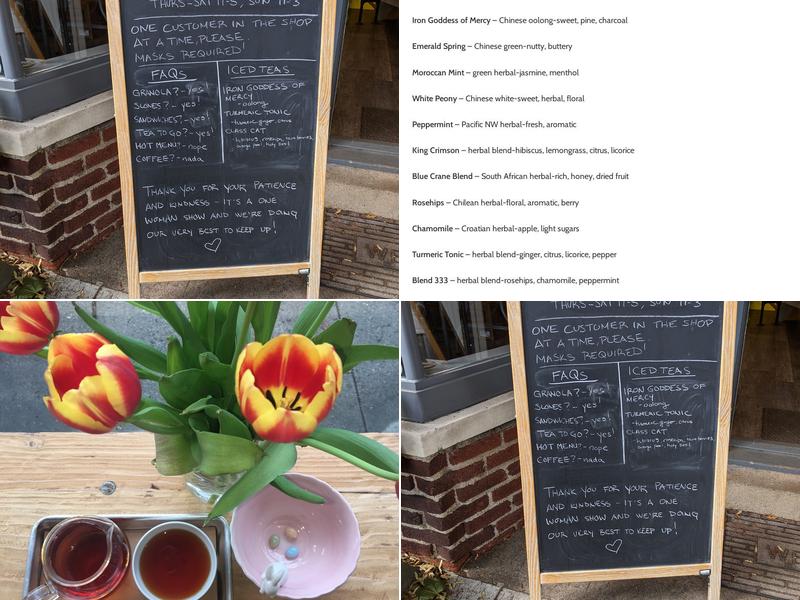 THURS-SAT 11-5, SUN 11-3
ONE CUSTOMER IN THE SHOP
AT A TIME, PLEASE.
MASKS REQUIRED!
FAQs
GRANOLA? - yes!
SCONES? - yes!
SANDWICHES? - yes!
TEA TO GO? - yes!
HOT MENU? - nope
COFFEE? - nada
ICED TEAS
IRON GODDESS OF
MERCY
- oolong
TURMERIC TONIC
- turmeric, ginger, citrus
CLASS CAT
THANK YOU FOR YOUR PATIENCE
AND KINDNESS - IT'S A ONE
WOMAN SHOW AND WE'RE DOING
OUR VERY BEST TO KEEP UP!
Iron Goddess of Mercy – Chinese oolong-sweet, pine, charcoal
Emerald Spring – Chinese green-nutty, buttery
Moroccan Mint – green herbal-jasmine, menthol
White Peony – Chinese white-sweet, herbal, floral
Peppermint – Pacific NW herbal-fresh, aromatic
King Crimson – herbal blend-hibiscus, lemongrass, citrus, licorice
Blue Crane Blend – South African herbal-rich, honey, dried fruit
Rosehips – Chilean herbal-floral, aromatic, berry
Chamomile – Croatian herbal-apple, light sugars
Turmeric Tonic – herbal blend-ginger, citrus, licorice, pepper
Blend 333 – herbal blend-rosehips, chamomile, peppermint
THURS-SAT 11-5, SUN 11-3
ONE CUSTOMER IN THE SHOP
AT A TIME, PLEASE.
MASKS REQUIRED!
FAQs
GRANOLA? - yes!
SCONES? - yes!
SANDWICHES? - yes!
TEA TO GO? - yes!
HOT MENU? - nope
COFFEE? - nada
ICED TEAS
IRON GODDESS OF
MERCY
- oolong
TURMERIC TONIC
- turmeric, ginger, citrus
CLASS CAT
THANK YOU FOR YOUR PATIENCE
AND KINDNESS - IT'S A ONE
WOMAN SHOW AND WE'RE DOING
OUR VERY BEST TO KEEP UP!